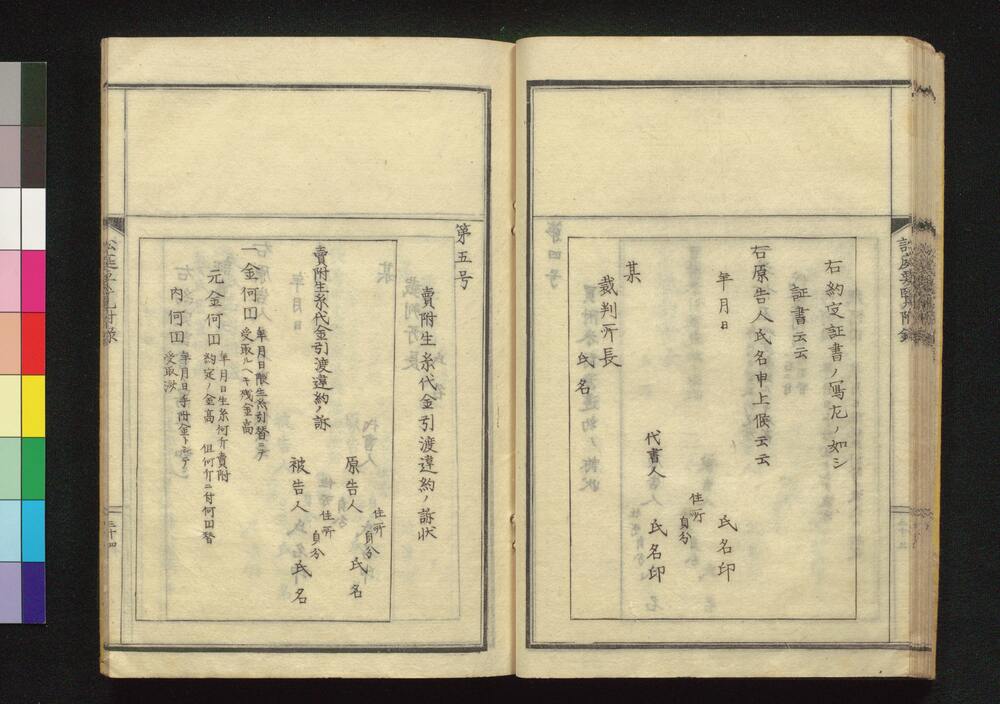 右約定証書ノ寫左ノ如シ
証書云云
右原告人氏名申上候云云
年月日
氏名印
住所
身分
代書人 氏名印
某
裁判所長
氏名
第五号
賣附生糸代金引渡違約ノ訴状
賣附生糸代金引渡違約ノ訴
住所
身分
原告人 氏名
住所
身分
被告人 氏名
一金何円 年月日限生糸引替ニテ
受取ルヘキ残金高
元金何円 年月日生糸何斤賣附
約定ノ金高 但何斤ニ付何円替
内何円 年月日手附金トシテ
受取濟
三十四